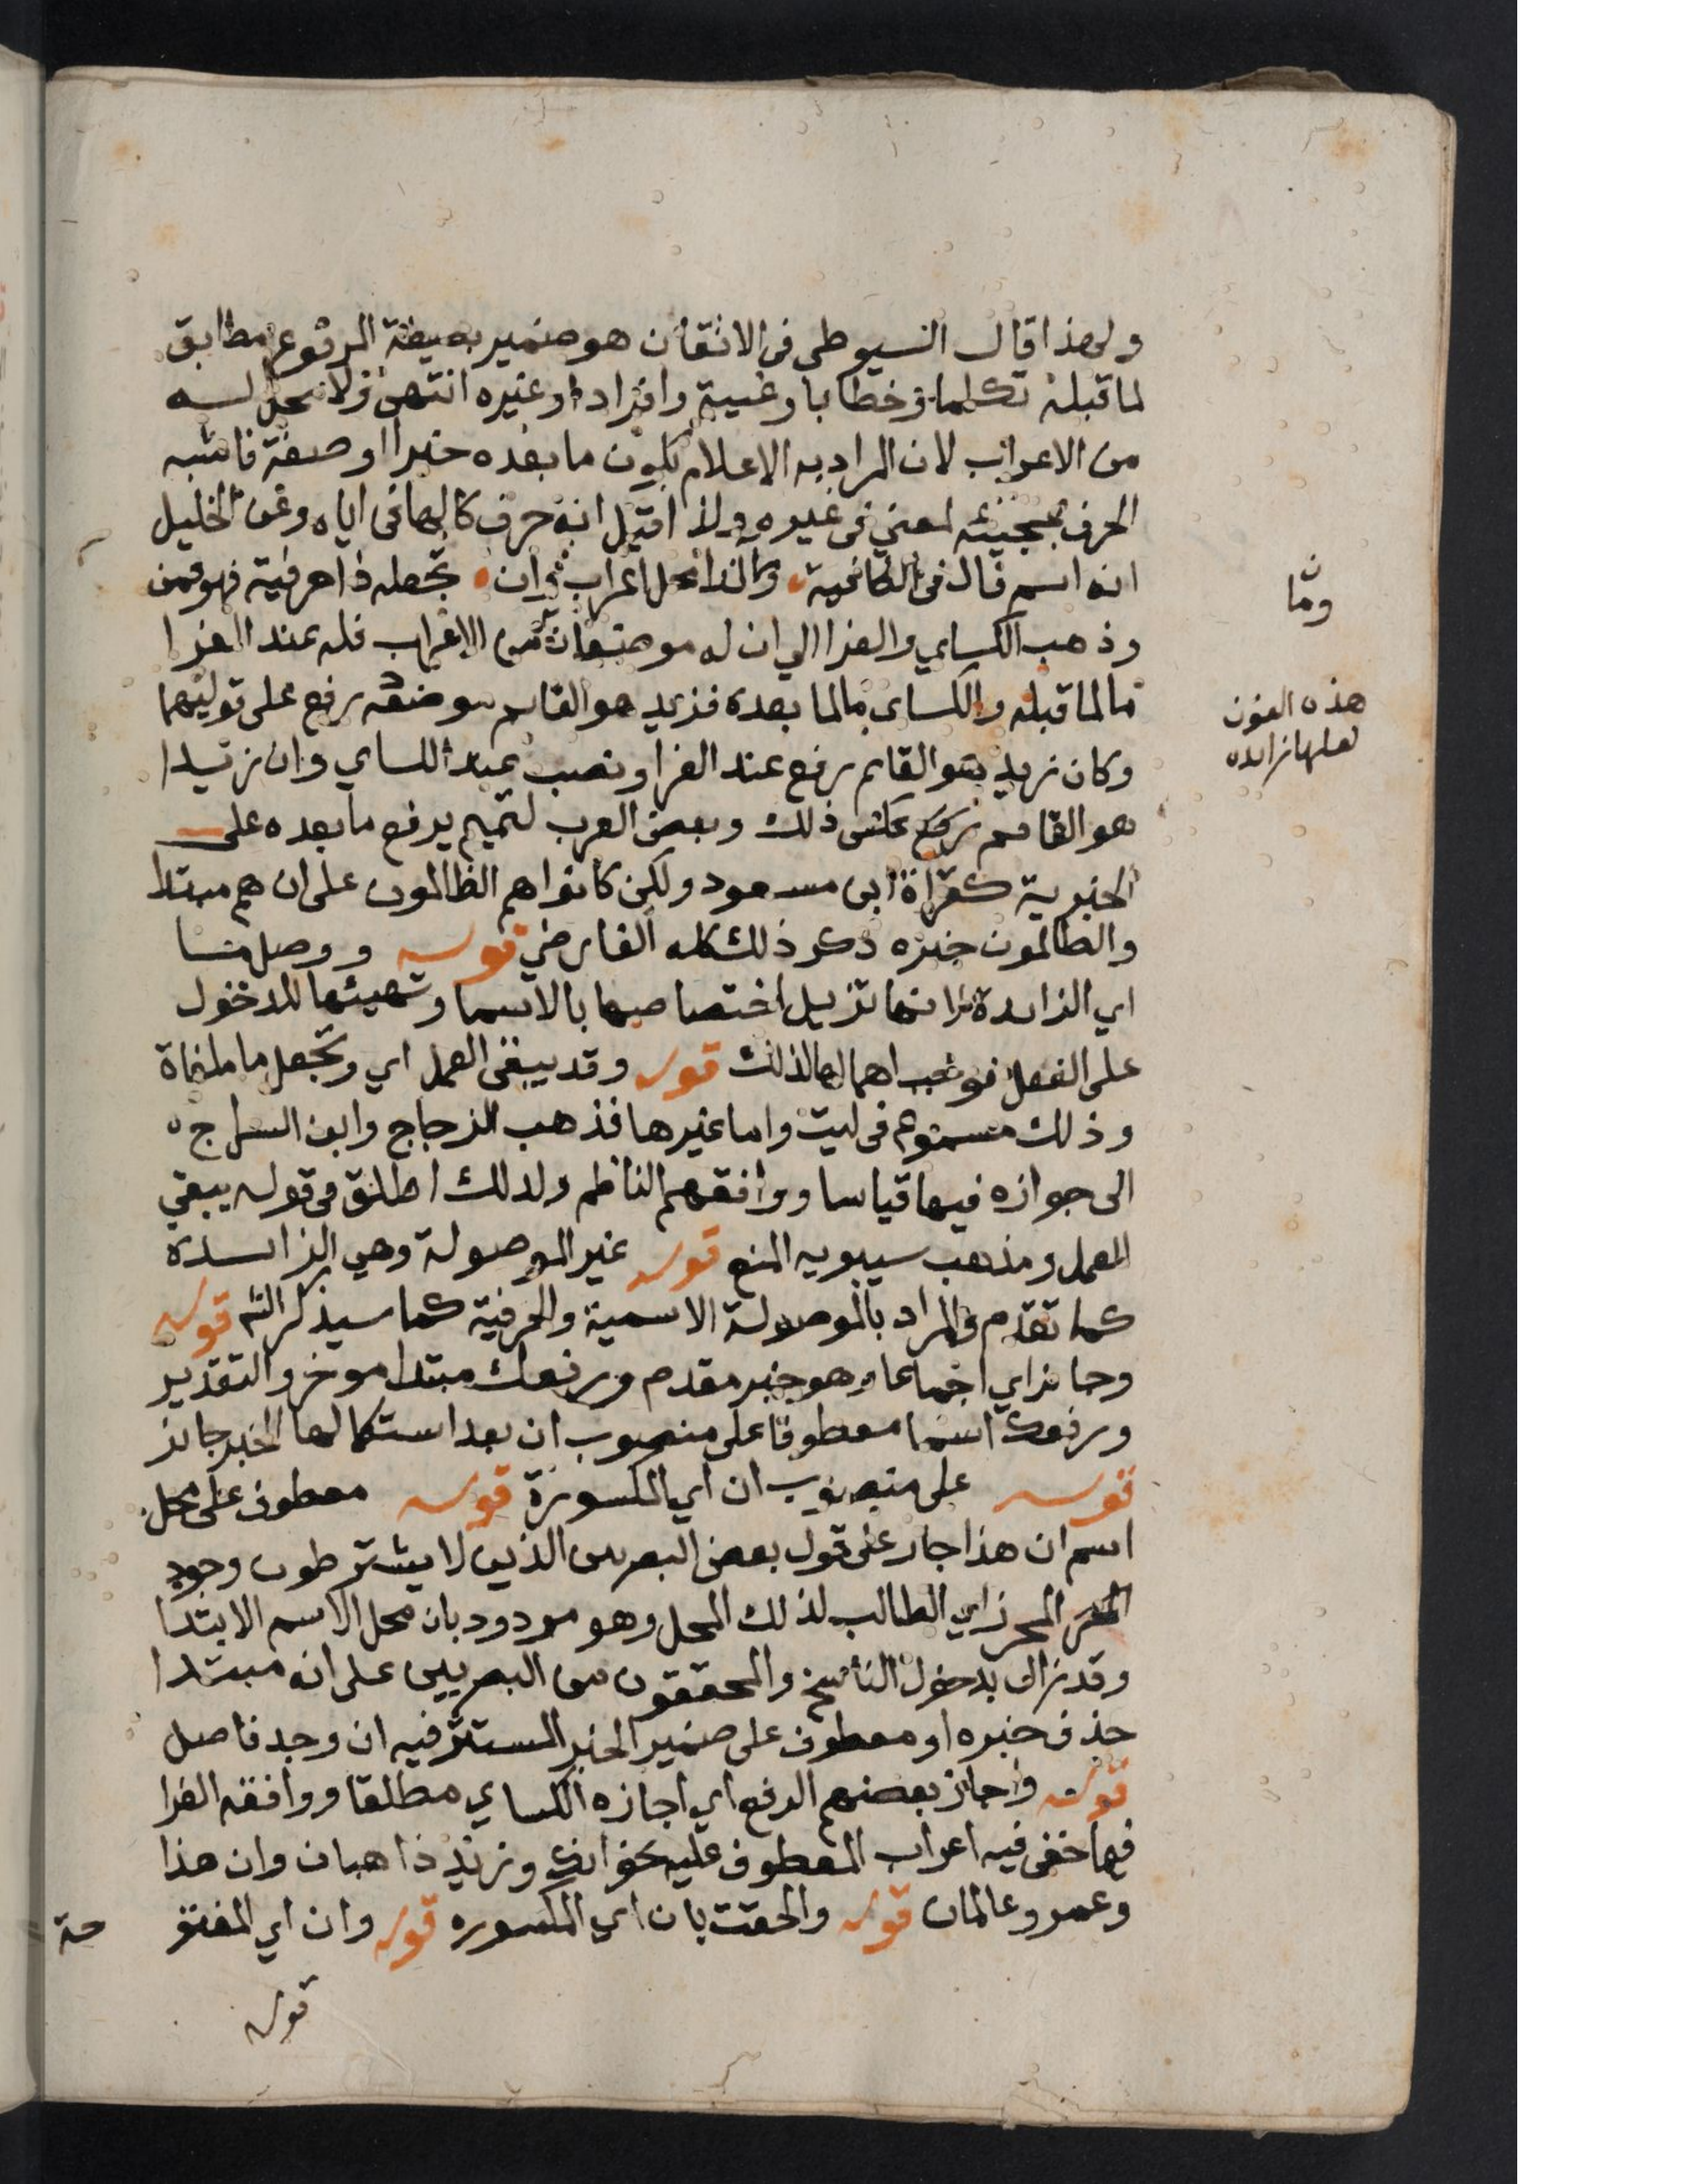 ولهذا قال السيوطي في الاتقان هو ضمير بصيغة المرفوع مطابق
لما قبله تكلما وخطابا وغيبة وافرادا وغيره انتهى ولا محل له
من الاعراب لان المراد به الاعلام بكون ما بعده خبرا او صفة فاشبه
الحرف بمجيئه لمعني في غيره ولذا قيل انه حرف كالها في اياه وعن الخليل
انه اسم قال في الكافية وما لذا محل اعراب وان تجعله ذا حرفية فهو قمن
وذهب الكساي والفرا الي ان له موضعان من الاعراب فله عند الفرا
ما لما قبله والكساي ما لما بعده فزيد هو القايم موضعه رفع على قوليهما
وكان زيد هو القايم رفع عند الفرا ونصب عند الكساي وان زيدا
هو القايم عكس ذلك وبعض العرب كتميم يرفع ما بعده على
الخبرية كقراة ابى مسعود ولكن كانوا هم الظالمون على ان هم مبتدا
والظالمون خبره ذكر ذلك كله الفارضي قوله ووصل ما
اي الزايدة لانها تزيل اختصاصها بالاسما وتهيئها للدخول
على الفعل فوجب اهمالها لذلك قوله وقد يبقى العمل اي وتجعل ما ملغاة
وذلك مسموع في ليت واما غيرها فذهب الزجاج وابن السراج
الى جوازه فيها قياسا ووافقهم الناظم ولذلك اطلق في قوله يبقي
العمل ومذهب سيبويه المنع قوله غير الموصولة وهي الزايدة
كما تقدم والمراد بالموصولة الاسمية والحرفية كما سيذكر الش قوله
وجايز اي اجماعا وهو خبر مقدم ورفعك مبتدا موخر والتقدير
ورفعك اسما معطوفا على منصوب ان بعد استكمالها الخبر جايز
قوله على منصوب ان اي المكسورة قوله معطوف على محل
اسم ان هذا جار على قول بعض البصريين الذين لا يشترطون وجود
المحرز اي الطالب لذلك المحل وهو مردود بان محل الاسم الابتدا
وقد زال بدخول الناسخ والمحققون من البصريين على انه مبتدا
حذف خبره او معطوف على ضمير الخبر المستتر فيه ان وجد فاصل
قوله واجاز بعضهم الرفع اي اجازه الكساي مطلقا ووافقه الفرا
فيما خفي فيه اعراب المعطوف عليه نحو انك وزيد ذاهبان وان هذا
وعمرو عالمان قوله والحقت بان اي المكسوره قوله وان اي المفتو
حة
قوله
وما
هذه النون
لعلها زايده